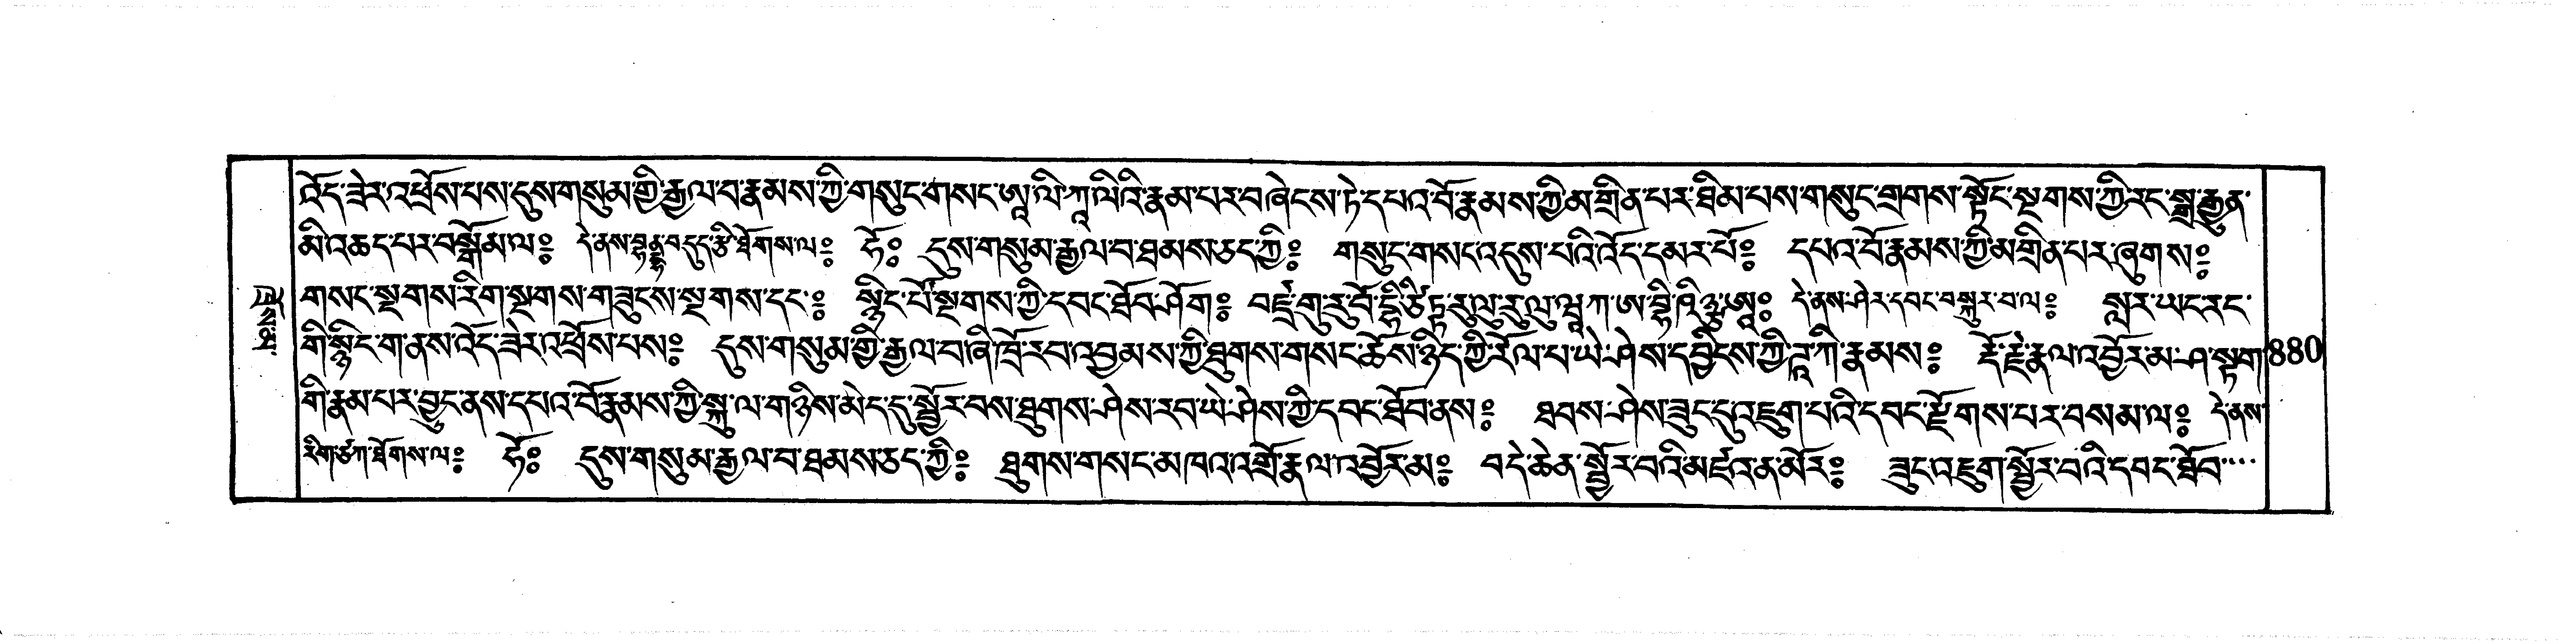 འོད་ཟེར་འཕྲོས་པས་དུས་གསུམ་གྱི་རྒྱལ་བ་རྣམས་ཀྱི་གསུང་གསང་ཨཱ་ལི་ཀཱ་ལིའི་རྣམ་པར་བཞེངས་ཏེ་དཔའ་བོ་རྣམས་ཀྱི་མགྲིན་པར་ཐིམ་པས་གསུང་གྲགས་སྟོང་སྔགས་ཀྱི་རང་སྒྲ་རྒྱུན་
མི་འཆད་པར་བསྒོམ་ལ༔ དེ་ནས་བདུད་རྩི་ཐོགས་ལ༔ ཧོ༔ དུས་གསུམ་རྒྱལ་བ་ཐམས་ཅད་ཀྱི༔ གསུང་གསང་འདུས་པའི་འོད་དམར་པོ༔ དཔའ་བོ་རྣམས་ཀྱི་མགྲིན་པར་ཞུགས༔
གསང་སྔགས་རིག་སྔགས་གཟུངས་སྔགས་དང་༔ སྙིང་པོ་སྔགས་ཀྱི་དབང་ཐོབ་ཤོག༔ བཛྲ་གུ་རུ་བོ་དྷི་ཙིཏྟ་རུ་ལུ་རུ་ལུ་ཨཱ༔ དེ་ནས་ཤེར་དབང་བསྐུར་བ་ལ༔ སླར་ཡང་རང་
གི་སྙིང་ག་ནས་འོད་ཟེར་འཕྲོས་པས༔ དུས་གསུམ་གྱི་རྒྱལ་བ་ཞི་ཁྲོ་རབ་འབྱམས་ཀྱི་ཐུགས་གསང་ཆོས་ཉིད་ཀྱི་རོལ་པ་ཡེ་ཤེས་དབྱིངས་ཀྱི་ཌཱ་ཀི་རྣམས༔ རྡོ་རྗེ་རྣལ་འབྱོར་མ་ཤ་སྟག་ 880
གི་རྣམ་པར་བྱུང་ནས་དཔའ་བོ་རྣམས་ཀྱི་སྐུ་ལ་གཉིས་མེད་དུ་སྦྱོར་བས་ཐུགས་ཤེས་རབ་ཡེ་ཤེས་ཀྱི་དབང་ཐོབ་ནས༔ ཐབས་ཤེས་ཟུང་དུ་འཇུག་པའི་དབང་རྫོགས་པར་བསམ་ལ༔ དེ་ནས་
རིག་ཙཀ་ཐོགས་ལ༔ ཧོ༔ དུས་གསུམ་རྒྱལ་བ་ཐམས་ཅད་ཀྱི༔ ཐུགས་གསང་མཁའ་འགྲོ་རྣལ་འབྱོར་མ༔ བདེ་ཆེན་སྦྱོར་བའི་མཛའ་ན་མོར༔ ཟུང་འཇུག་སྦྱོར་བའི་དབང་ཐོབ་